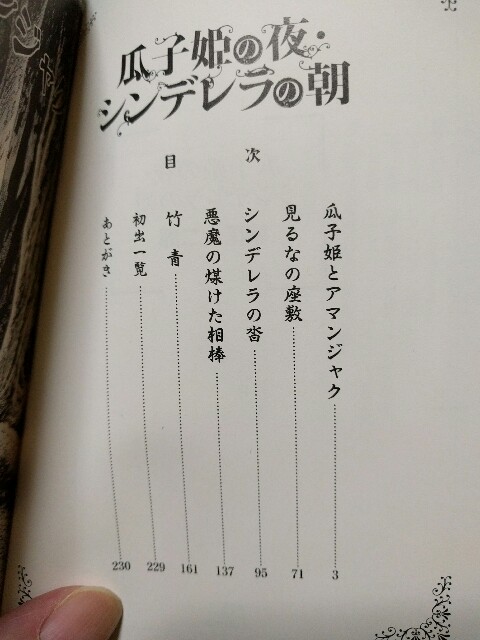 瓜子姫の夜・
シンデレラの朝
目次
瓜子姫とアマンジャク 3
見るなの座敷 71
シンデレラの沓 95
悪魔の煤けた相棒 137
竹青 161
初出一覧 229
あとがき 230